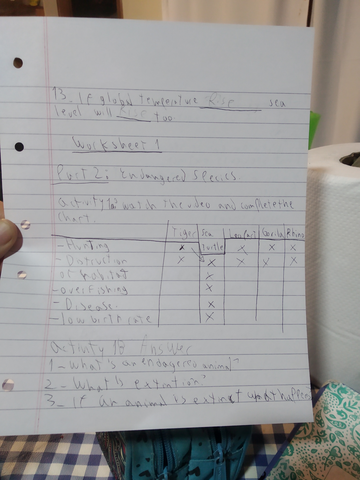 13. If global temperature Rise sea
level will rise too
Worksheet 1
Part 2: Endangered Species
Activity 1a watch the video and complete the
chart.
Tiger Sea turtle Leopard Gorilla Rhino
- Hunting x x x x
- Distruction x x x x x
of habitat x
- overfishing x
- Disease x
- low birth rate x
Activity 1B Answer
1- What's an endagered animal?
2- What is extintion?
3- If an animal is extinct what happen